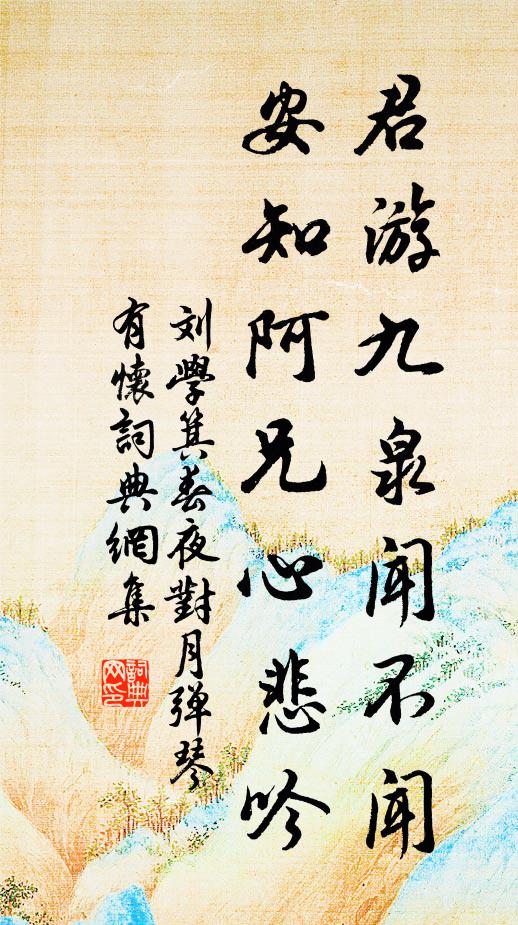 君游九泉闻不闻
安知阿兄心悲吟
刘學箕春夜對月弹琴
有懷詞典網集
詞典網印